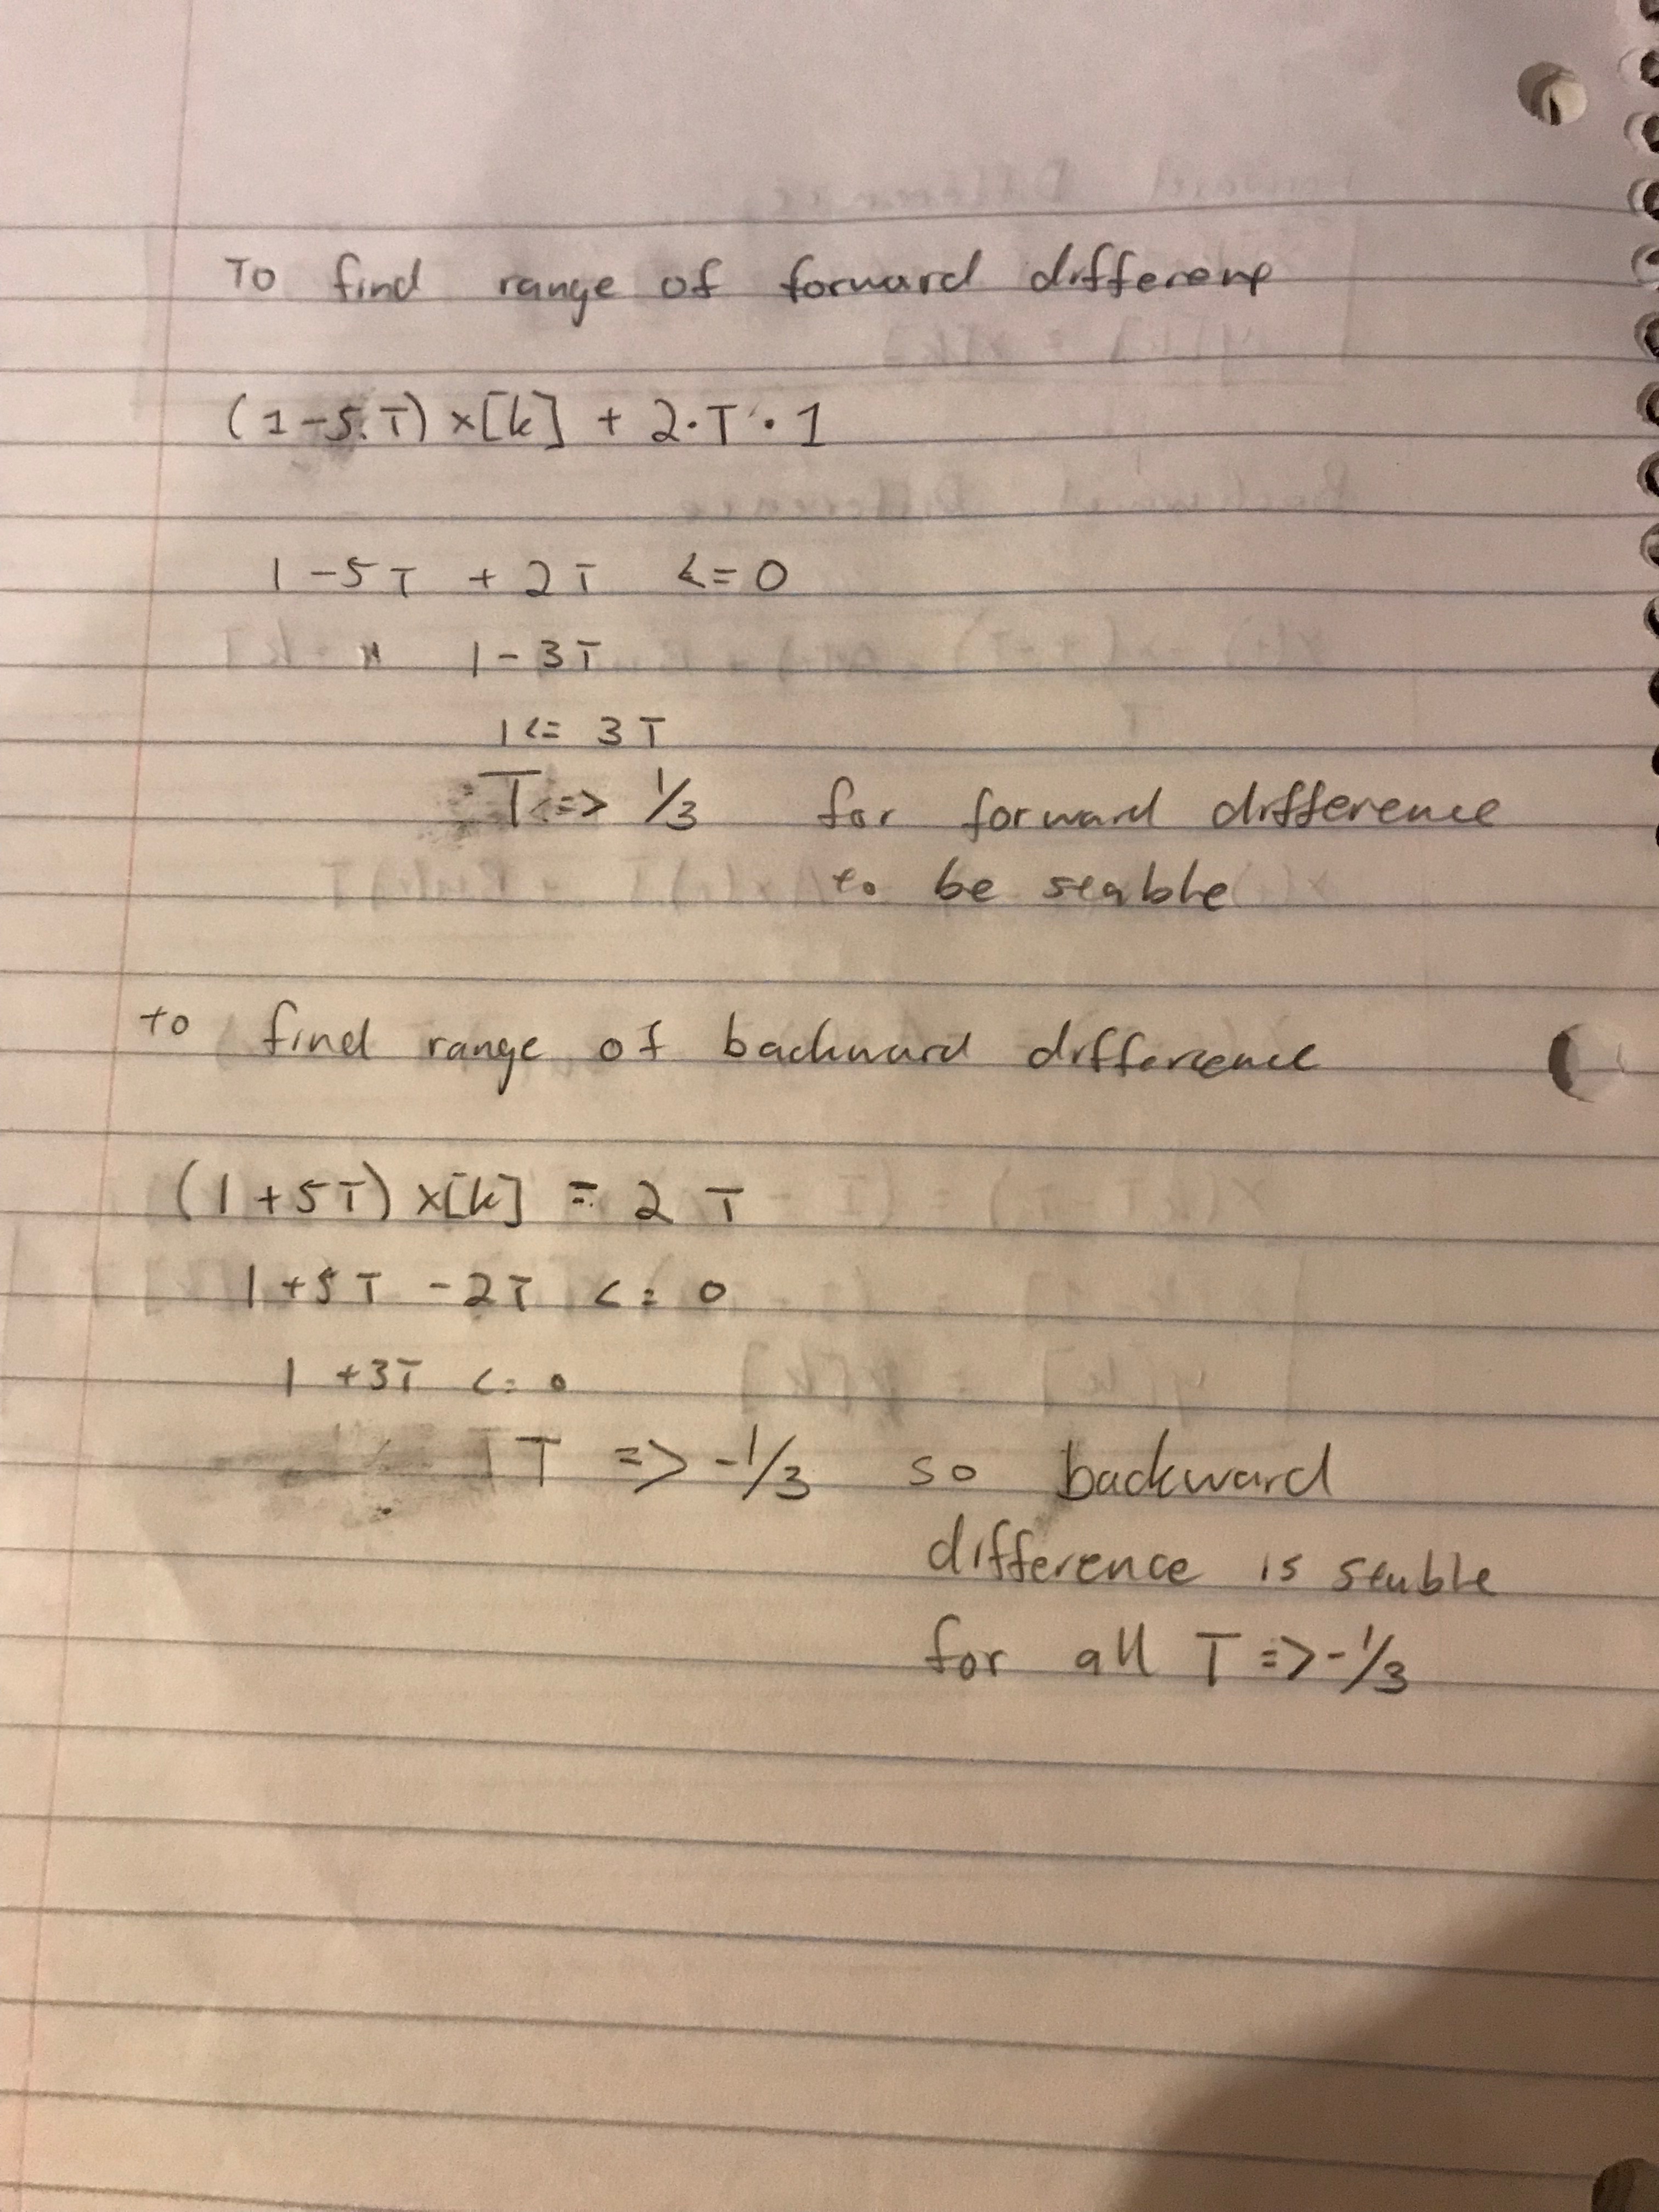 To find range of forward differenc
(1-5.T) x[k] + 2·T·1
1-5T + 2T <= 0
1-3T
1 <= 3T
T => 1/3 for forward difference
to be stable
to find range of backward difference
(1+5T) x[k] = 2 T
1+5T -2T <= 0
1 +3T <= 0
T => -1/3 so backward
difference is stable
for all T => -1/3